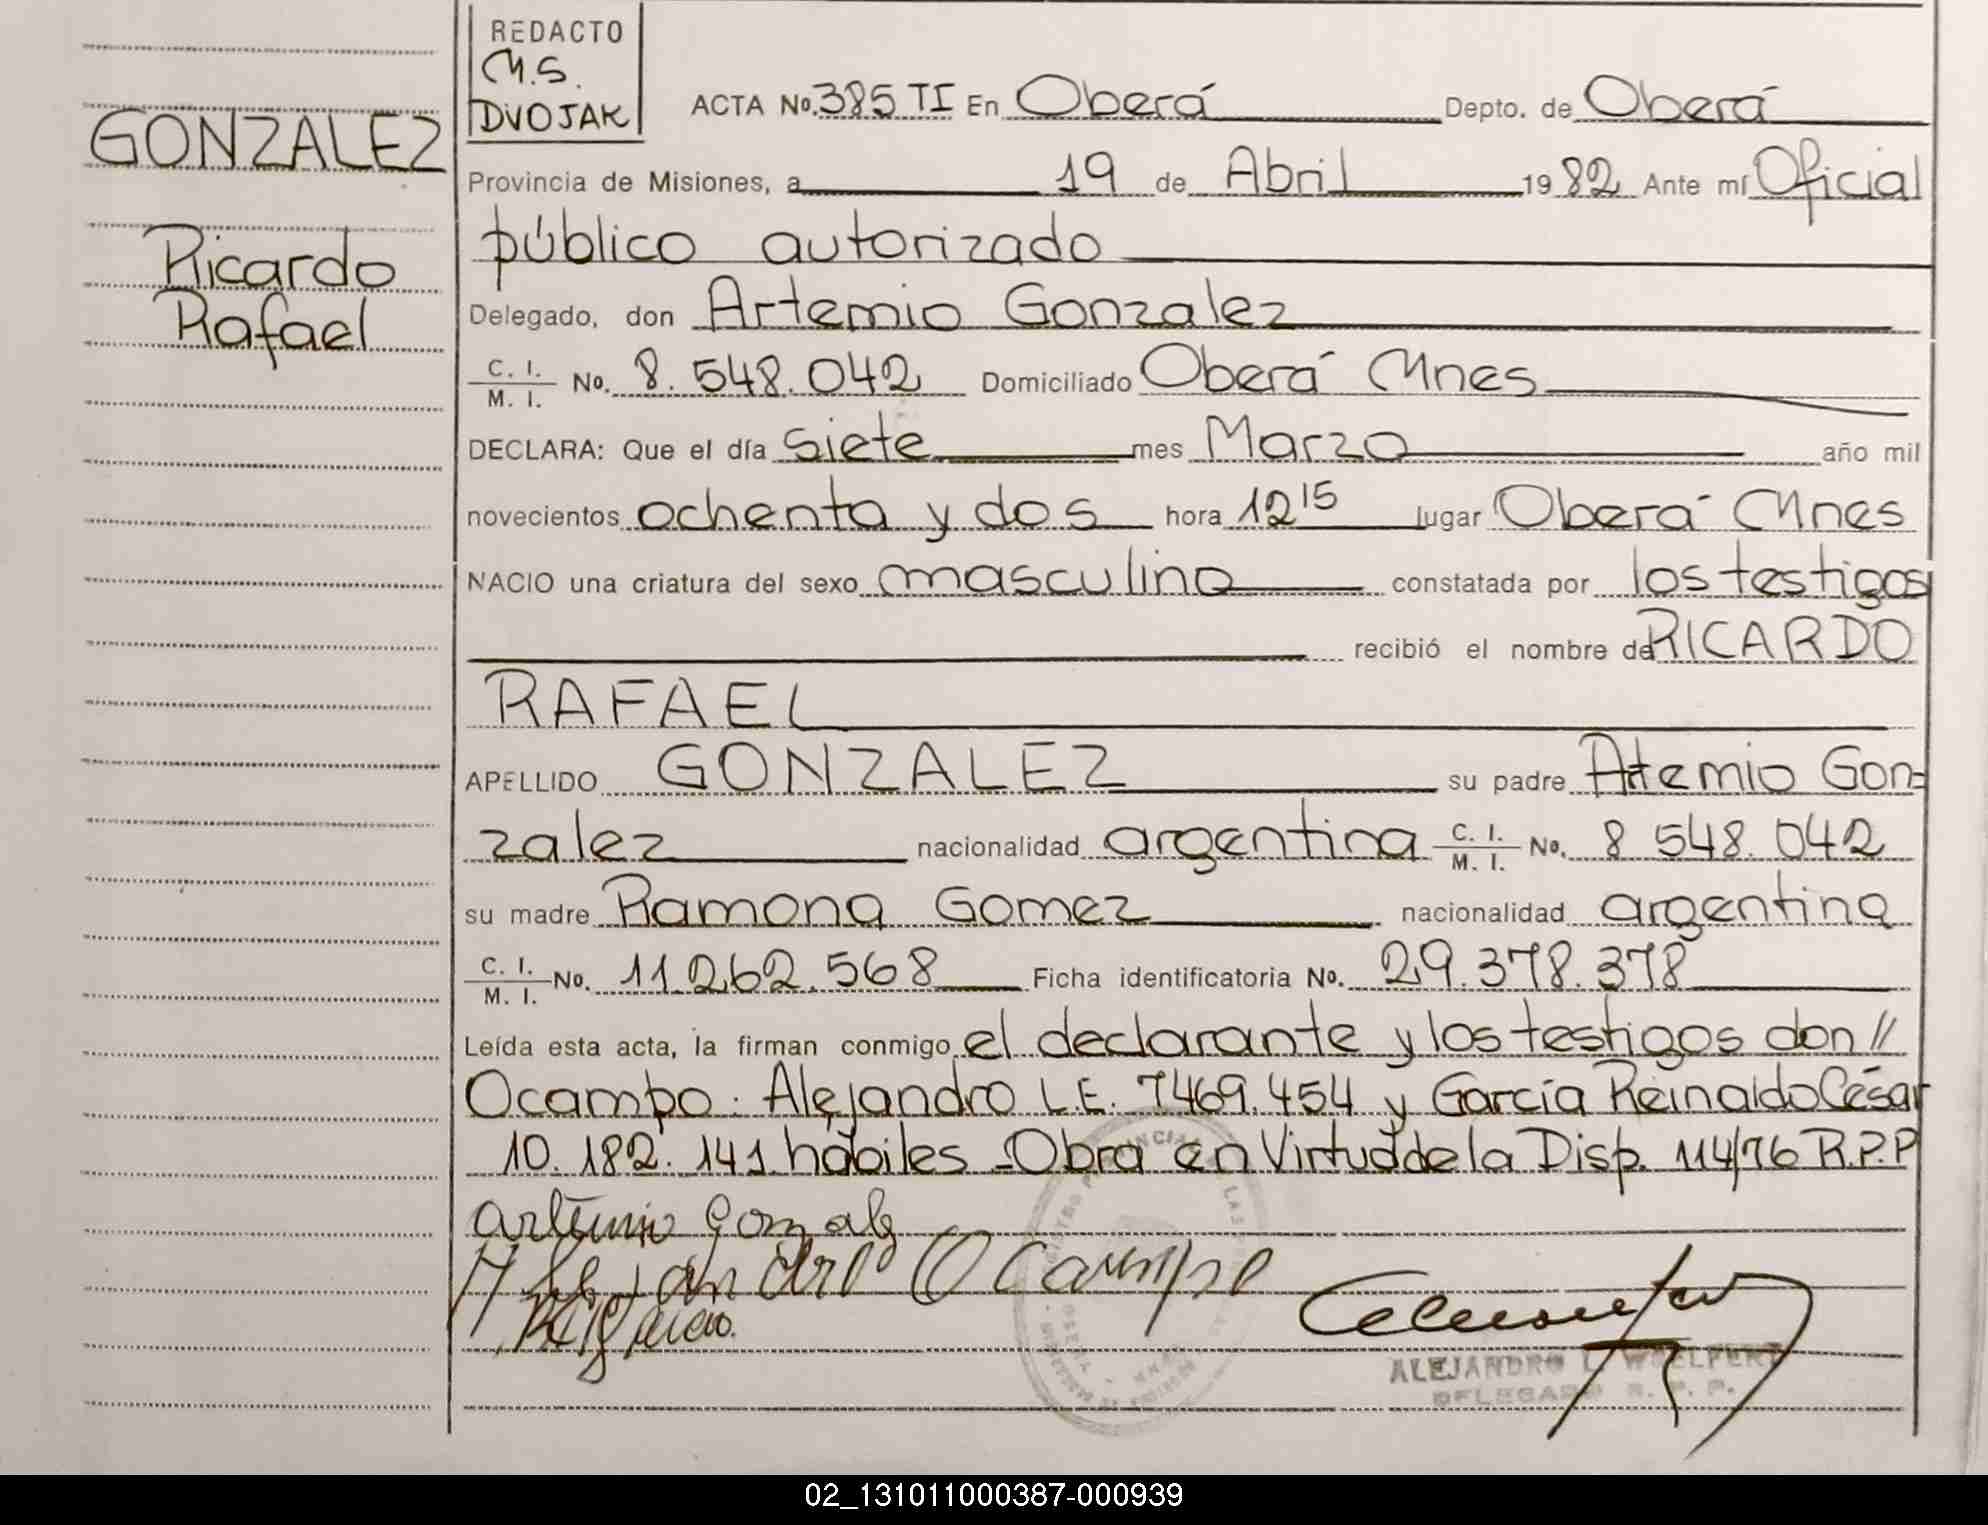 REDACTO
M.S.
DVOJAK
ACTA No. 385 TI En Oberá Depto. de Oberá
GONZALEZ
Ricardo
Rafael
Provincia de Misiones, a 19 de Abril 1982 Ante mí Oficial
público autorizado
Delegado, don Artemio Gonzalez
C. I. / M. I. No. 8.548.042 Domiciliado Oberá Mnes
DECLARA: Que el día siete mes Marzo año mil
novecientos ochenta y dos hora 12 15 lugar Oberá Mnes
NACIO una criatura del sexo masculino constatada por los testigos
recibió el nombre de RICARDO
RAFAEL
APELLIDO GONZALEZ su padre Artemio Gon=
zalez nacionalidad argentina C. I. / M. I. No. 8 548.042
su madre Ramona Gomez nacionalidad argentina
C. I. / M. I. No. 11.262.568 Ficha identificatoria No. 29.378.378
Leída esta acta, la firman conmigo el declarante y los testigos don //
Ocampo. Alejandro L.E. 7469.454 y García Reinaldo César
10.182.141 hábiles - Obra en Virtud de la Disp. 114/76 R.P.P
Artemio Gonzalez
Alejandro Ocampo
ALEJANDRO L. WOELFERT
DELEGADO R. P. P.
02_131011000387-000939